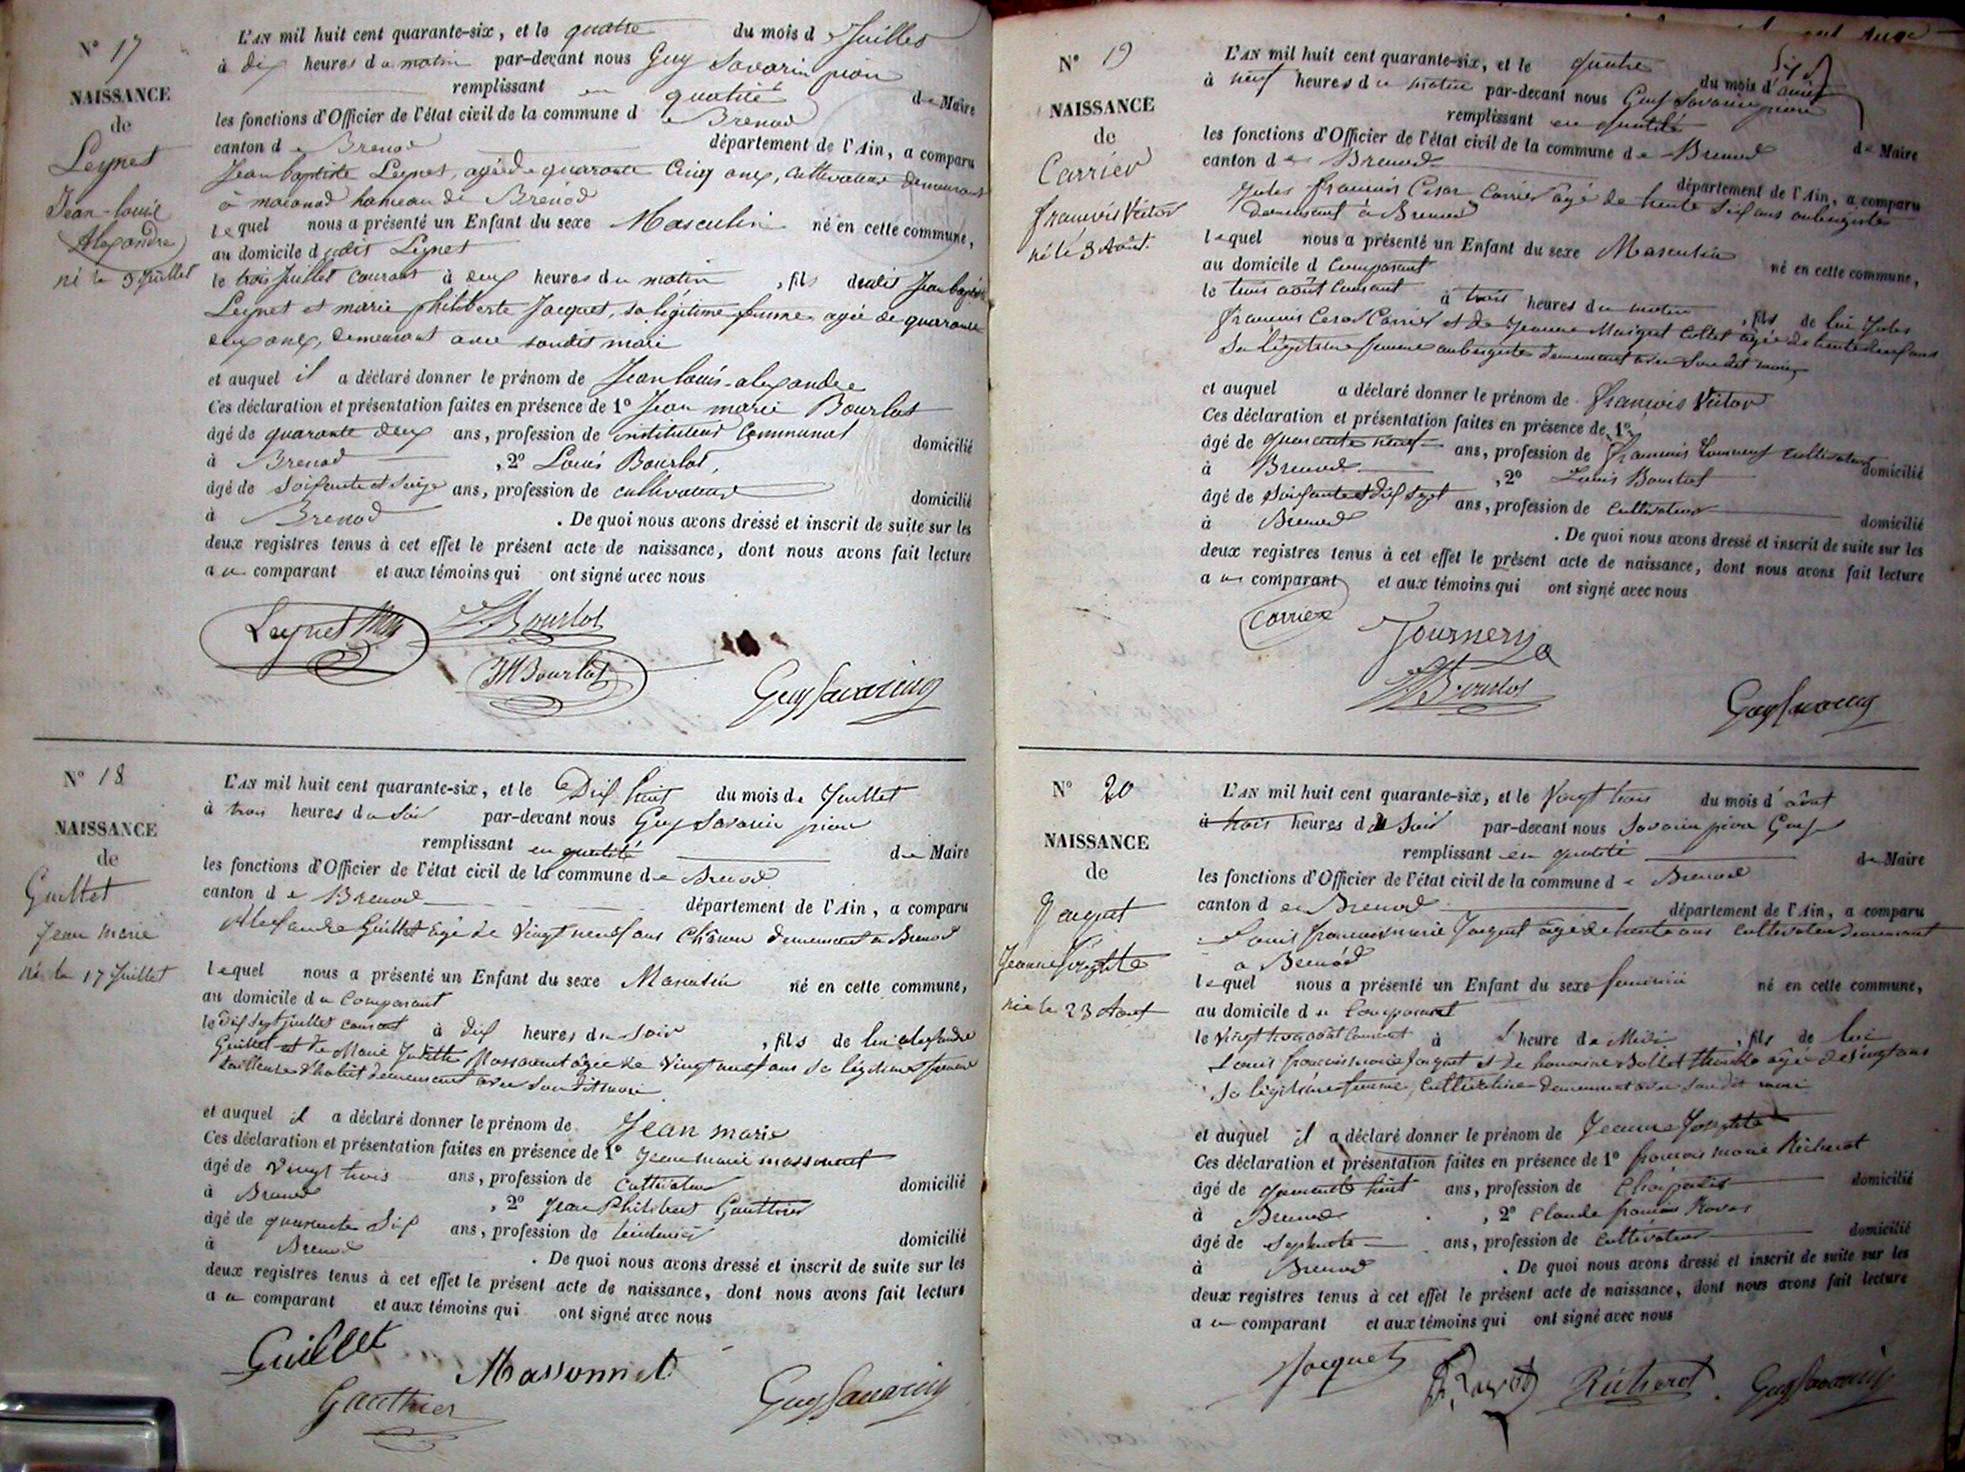 N° 17
NAISSANCE
de
Leynet
Jean-louis
Alexandre
né le 3 Juillet
L'AN mil huit cent quarante-six, et le quatre du mois d Juillet
à dix heures du matin par-devant nous Guy Savarin pion
remplissant en qualité de Maire
les fonctions d'Officier de l'état civil de la commune de Brenod
canton de Brenod département de l'Ain, a comparu
Jean baptiste Leynet, agé de quarante cinq ans, cultivateur demeurant
à macconod hameau de Brenod
lequel nous a présenté un Enfant du sexe Masculin né en cette commune,
au domicile dudit Leynet
le trois Juillet courant à deux heures du matin, fils dudit Jean baptiste
Leynet et marie philiberte Jacquet, sa légitime femme agée de quarante
deux ans, demeurant avec soudit mari
et auquel il a déclaré donner le prénom de Jean louis-alexandre
Ces déclaration et présentation faites en présence de 1° Jean marie Bourlot
âgé de quarante deux ans, profession de instituteur communal domicilié
à Brenod, 2° Louis Bourlot,
âgé de soixante et seize ans, profession de cultivateur domicilié
à Brenod. De quoi nous avons dressé et inscrit de suite sur les
deux registres tenus à cet effet le présent acte de naissance, dont nous avons fait lecture
au comparant et aux témoins qui ont signé avec nous
Leynet
L Bourlot
JM Bourlot
Guy Savarin
N° 18
NAISSANCE
de
Guillet
Jean marie
né le 17 Juillet
L'AN mil huit cent quarante-six, et le Dix huit du mois de Juillet
à trois heures du soir par-devant nous Guy Savarin pion
remplissant en qualité de Maire
les fonctions d'Officier de l'état civil de la commune de Brenod
canton de Brenod département de l'Ain, a comparu
Alexandre Guillet agé de vingt neuf ans demeurant a Brenod
lequel nous a présenté un Enfant du sexe Masculin né en cette commune,
au domicile du comparant
le dix sept juillet courant à dix heures du soir, fils de lui alexandre
Guillet et de Marie Judith Massonnet agée de vingt neuf ans sa légitime femme
tailleuse d'habit demeurant avec son dit mari
et auquel il a déclaré donner le prénom de Jean marie
Ces déclaration et présentation faites en présence de 1° Jean marie massonnet
âgé de vingt trois ans, profession de cultivateur domicilié
à Brenod, 2° Jean Philibert Gauthier
âgé de quarante six ans, profession de domicilié
à Brenod. De quoi nous avons dressé et inscrit de suite sur les
deux registres tenus à cet effet le présent acte de naissance, dont nous avons fait lecture
au comparant et aux témoins qui ont signé avec nous
Guillet
Massonnet
Gauthier
Guy Savarin
N° 19
NAISSANCE
de
Carrier
françois Victor
né le 3 Août.
L'AN mil huit cent quarante-six, et le quatre du mois d'août
à neuf heures du matin par-devant nous Guy Savarin pion
remplissant en qualité de Maire
les fonctions d'Officier de l'état civil de la commune de Brenod
canton de Brenod département de l'Ain, a comparu
Jules françois Cesar Carrier agé de trente six ans aubergiste
demeurant à Brenod
lequel nous a présenté un Enfant du sexe Masculin né en cette commune,
au domicile d comparant
le trois août courant à trois heures du matin, fils de lui Jules
françois Cesar Carrier et de Jeanne Collet agée de trente ans
sa légitime femme aubergiste demeurant avec son dit mari
et auquel a déclaré donner le prénom de françois Victor
Ces déclaration et présentation faites en présence de 1°
âgé de quarante neuf ans, profession de cultivateur domicilié
à Brenod, 2° Louis Bourlot
âgé de soixante et dix sept ans, profession de cultivateur domicilié
à Brenod. De quoi nous avons dressé et inscrit de suite sur les
deux registres tenus à cet effet le présent acte de naissance, dont nous avons fait lecture
au comparant et aux témoins qui ont signé avec nous
Carrier
L Bourlot
Guy Savarin
N° 20
NAISSANCE
de
Jacquet
Jeanne Josephte
née le 23 Aout
L'AN mil huit cent quarante-six, et le vingt trois du mois d'août
à trois heures du soir par-devant nous Savarin pion Guy
remplissant en qualité de Maire
les fonctions d'Officier de l'état civil de la commune de Brenod
canton de Brenod département de l'Ain, a comparu
Louis françois marie Jacquet agé de trente ans cultivateur demeurant
a Brenod
lequel nous a présenté un Enfant du sexe féminin né en cette commune,
au domicile du comparant
le vingt trois août courant à heure de Midi, fils de lui
Louis françois marie Jacquet et de Bollet agée de vingt ans
sa légitime femme, cultivatrice demeurant avec son dit mari
et auquel il a déclaré donner le prénom de Jeanne Josephte
Ces déclaration et présentation faites en présence de 1° françois marie Richerot
âgé de quarante huit ans, profession de domicilié
à Brenod, 2° Claude françois
âgé de septante ans, profession de cultivateur domicilié
à Brenod. De quoi nous avons dressé et inscrit de suite sur les
deux registres tenus à cet effet le présent acte de naissance, dont nous avons fait lecture
au comparant et aux témoins qui ont signé avec nous
Jacquet
Richerot
Guy Savarin